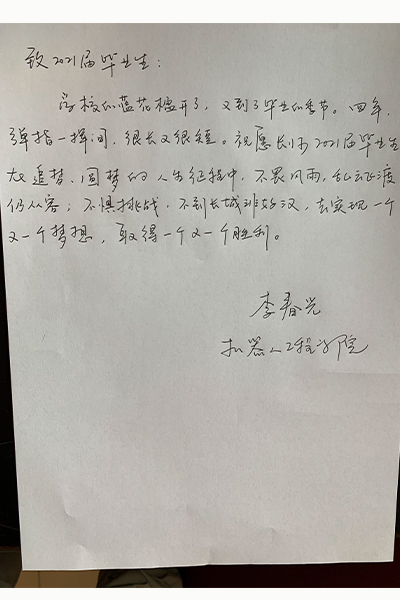 致2021届毕业生：
学校的蓝花楹开了，又到了毕业的季节。四年，
弹指一挥间，很长又很短。祝愿长师2021届毕业生
在追梦、圆梦的人生征程中，不畏风雨，乱云飞渡
仍从容；不惧挑战，不到长城非好汉，去实现一个
又一个梦想，取得一个又一个胜利。
李春光
机器人工程学院